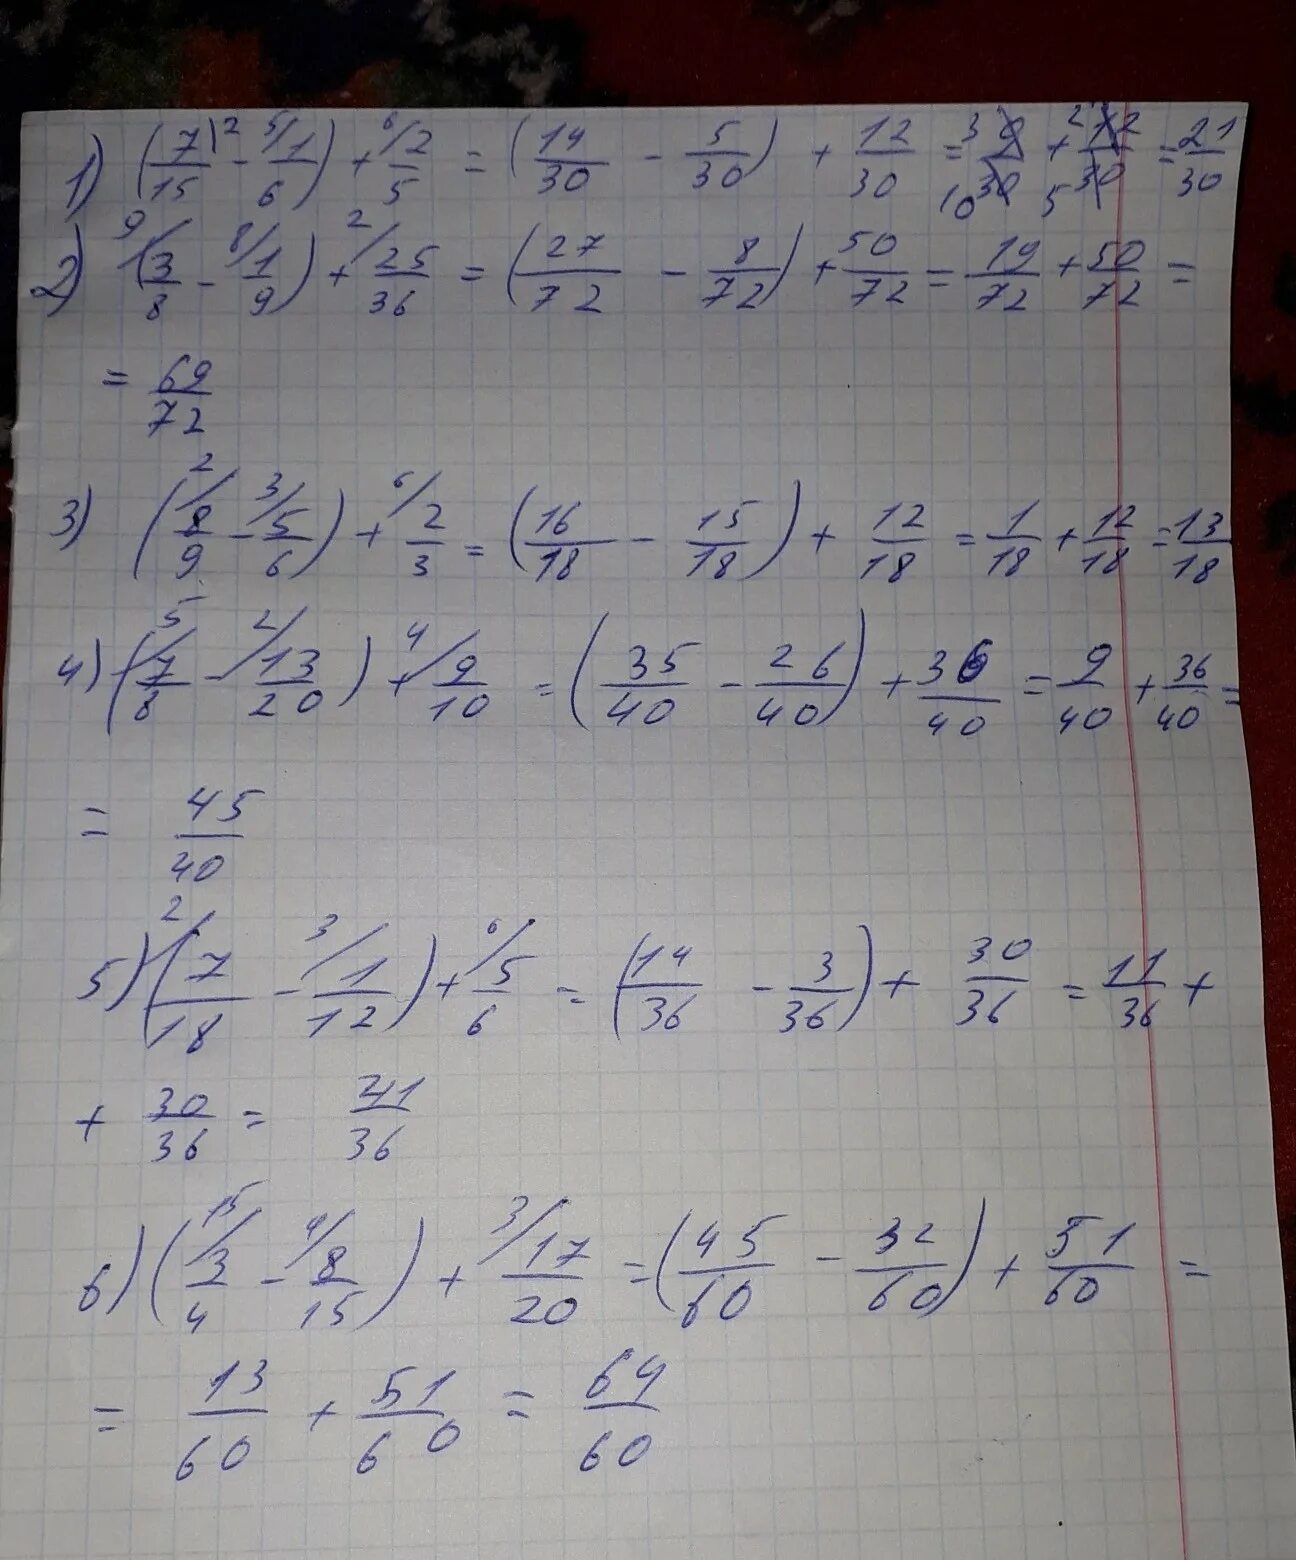 1) (7/15 |2 - 5/ 1/6) + 6/ 2/5 = (14/30 - 5/30) + 12/30 = 3 9/30 10 + 2 12/30 5 = 21/30
2) (9/ 3/8 - 8/ 1/9) + 2/ 25/36 = (27/72 - 8/72) + 50/72 = 19/72 + 50/72 =
= 69/72
3) (2/ 8/9 - 3/ 5/6) + 6/ 2/3 = (16/18 - 15/18) + 12/18 = 1/18 + 12/18 = 13/18
4) (5/ 7/8 - 2/ 13/20) + 4/ 9/10 = (35/40 - 26/40) + 36/40 = 9/40 + 36/40 =
= 45/40
5) (2/ 7/18 - 3/ 1/12) + 6/ 5/6 = (14/36 - 3/36) + 30/36 = 11/36 +
+ 30/36 = 41/36
6) (15/ 3/4 - 4/ 8/15) + 3/ 17/20 = (45/60 - 32/60) + 51/60 =
= 13/60 + 51/60 = 64/60